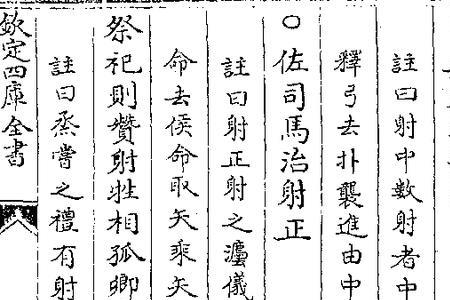 註曰射中數射者中
釋弓去扑襲進由中
○佐司馬治射正
註曰射正射之灋儀
命去侯命取矢乘矢
祭祀則贊射牲相孤卿
註曰烝嘗之禮有射
欽定四庫全書